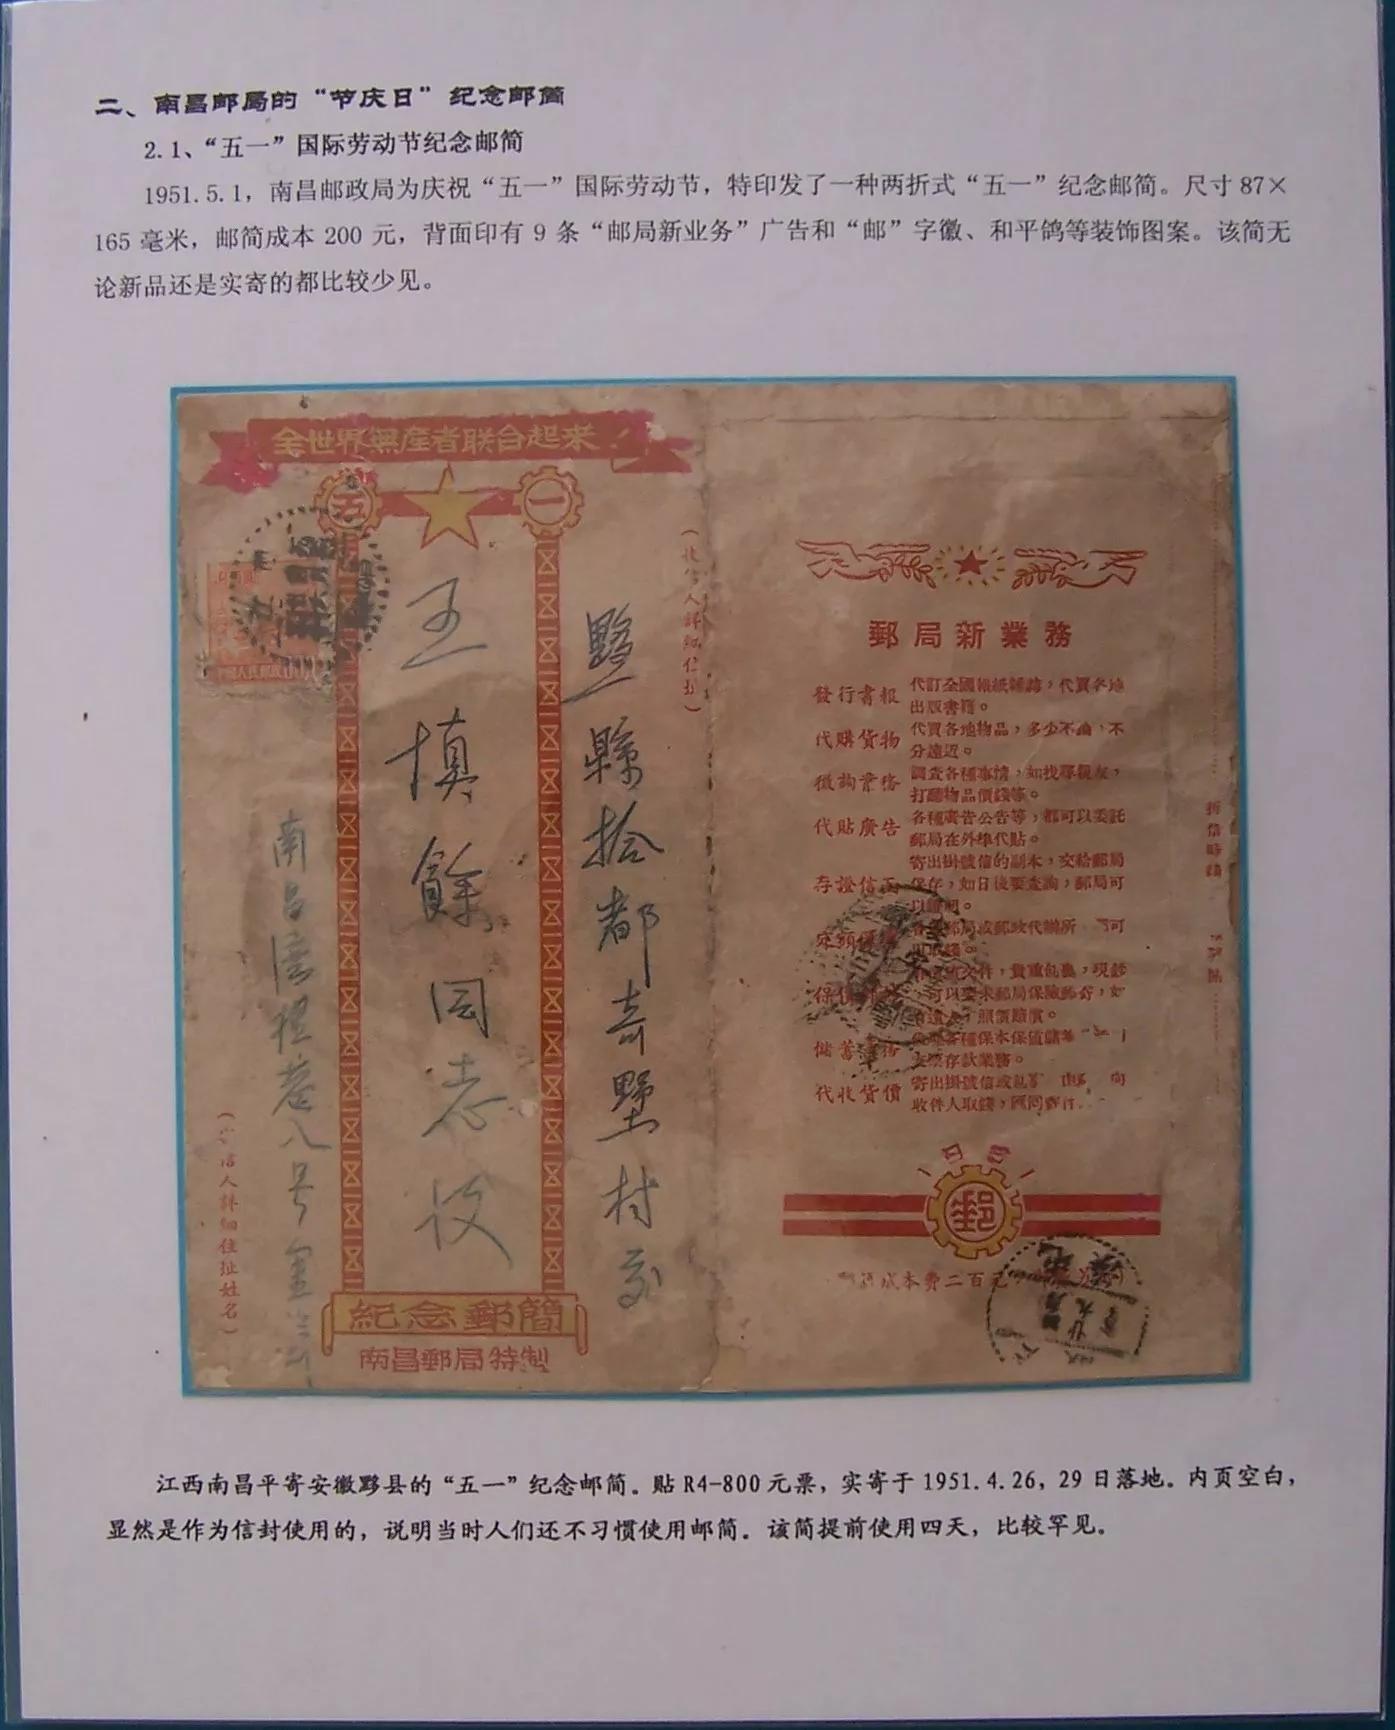 二、南昌邮局的“节庆日”纪念邮简
2.1、“五一”国际劳动节纪念邮简
1951.5.1，南昌邮政局为庆祝“五一”国际劳动节，特印发了一种两折式“五一”纪念邮简。尺寸 87×
165 毫米，邮简成本 200 元，背面印有 9 条“邮局新业务”广告和“邮”字徽、和平鸽等装饰图案。该简无
论新品还是实寄的都比较少见。
全世界無產者联合起来
五 一
黟縣拾都
村
同志收
南昌
八号
信人詳細住址姓名）
紀念郵簡
南昌郵局特製
郵局新業務
發行書報 代訂全國報紙雜誌，代買各地
出版書籍。
代購貨物 代買各地物品，多少不論，不
分遠近。
徵詢業務 調查各種事情，如找尋親友，
打聽物品價錢等。
代貼廣告 各種廣告公告等，都可以委託
郵局在外埠代貼。
存證信函 寄出掛號信的副本，交給郵局
保存，如日後要查詢，郵局可
以證明。
郵局或郵政代辦所 可
文件，貴重包裹，現鈔
可以要求郵局保險郵寄，如
照價賠償。
儲蓄 各種保本保值儲
存款業務。
代收貨價 寄出掛號信或包 向
收件人取錢，
郵
成本費二百元
拆信時請
江西南昌平寄安徽黟县的“五一”纪念邮简。贴 R4-800 元票，实寄于 1951.4.26，29 日落地。内页空白，
显然是作为信封使用的，说明当时人们还不习惯使用邮简。该简提前使用四天，比较罕见。